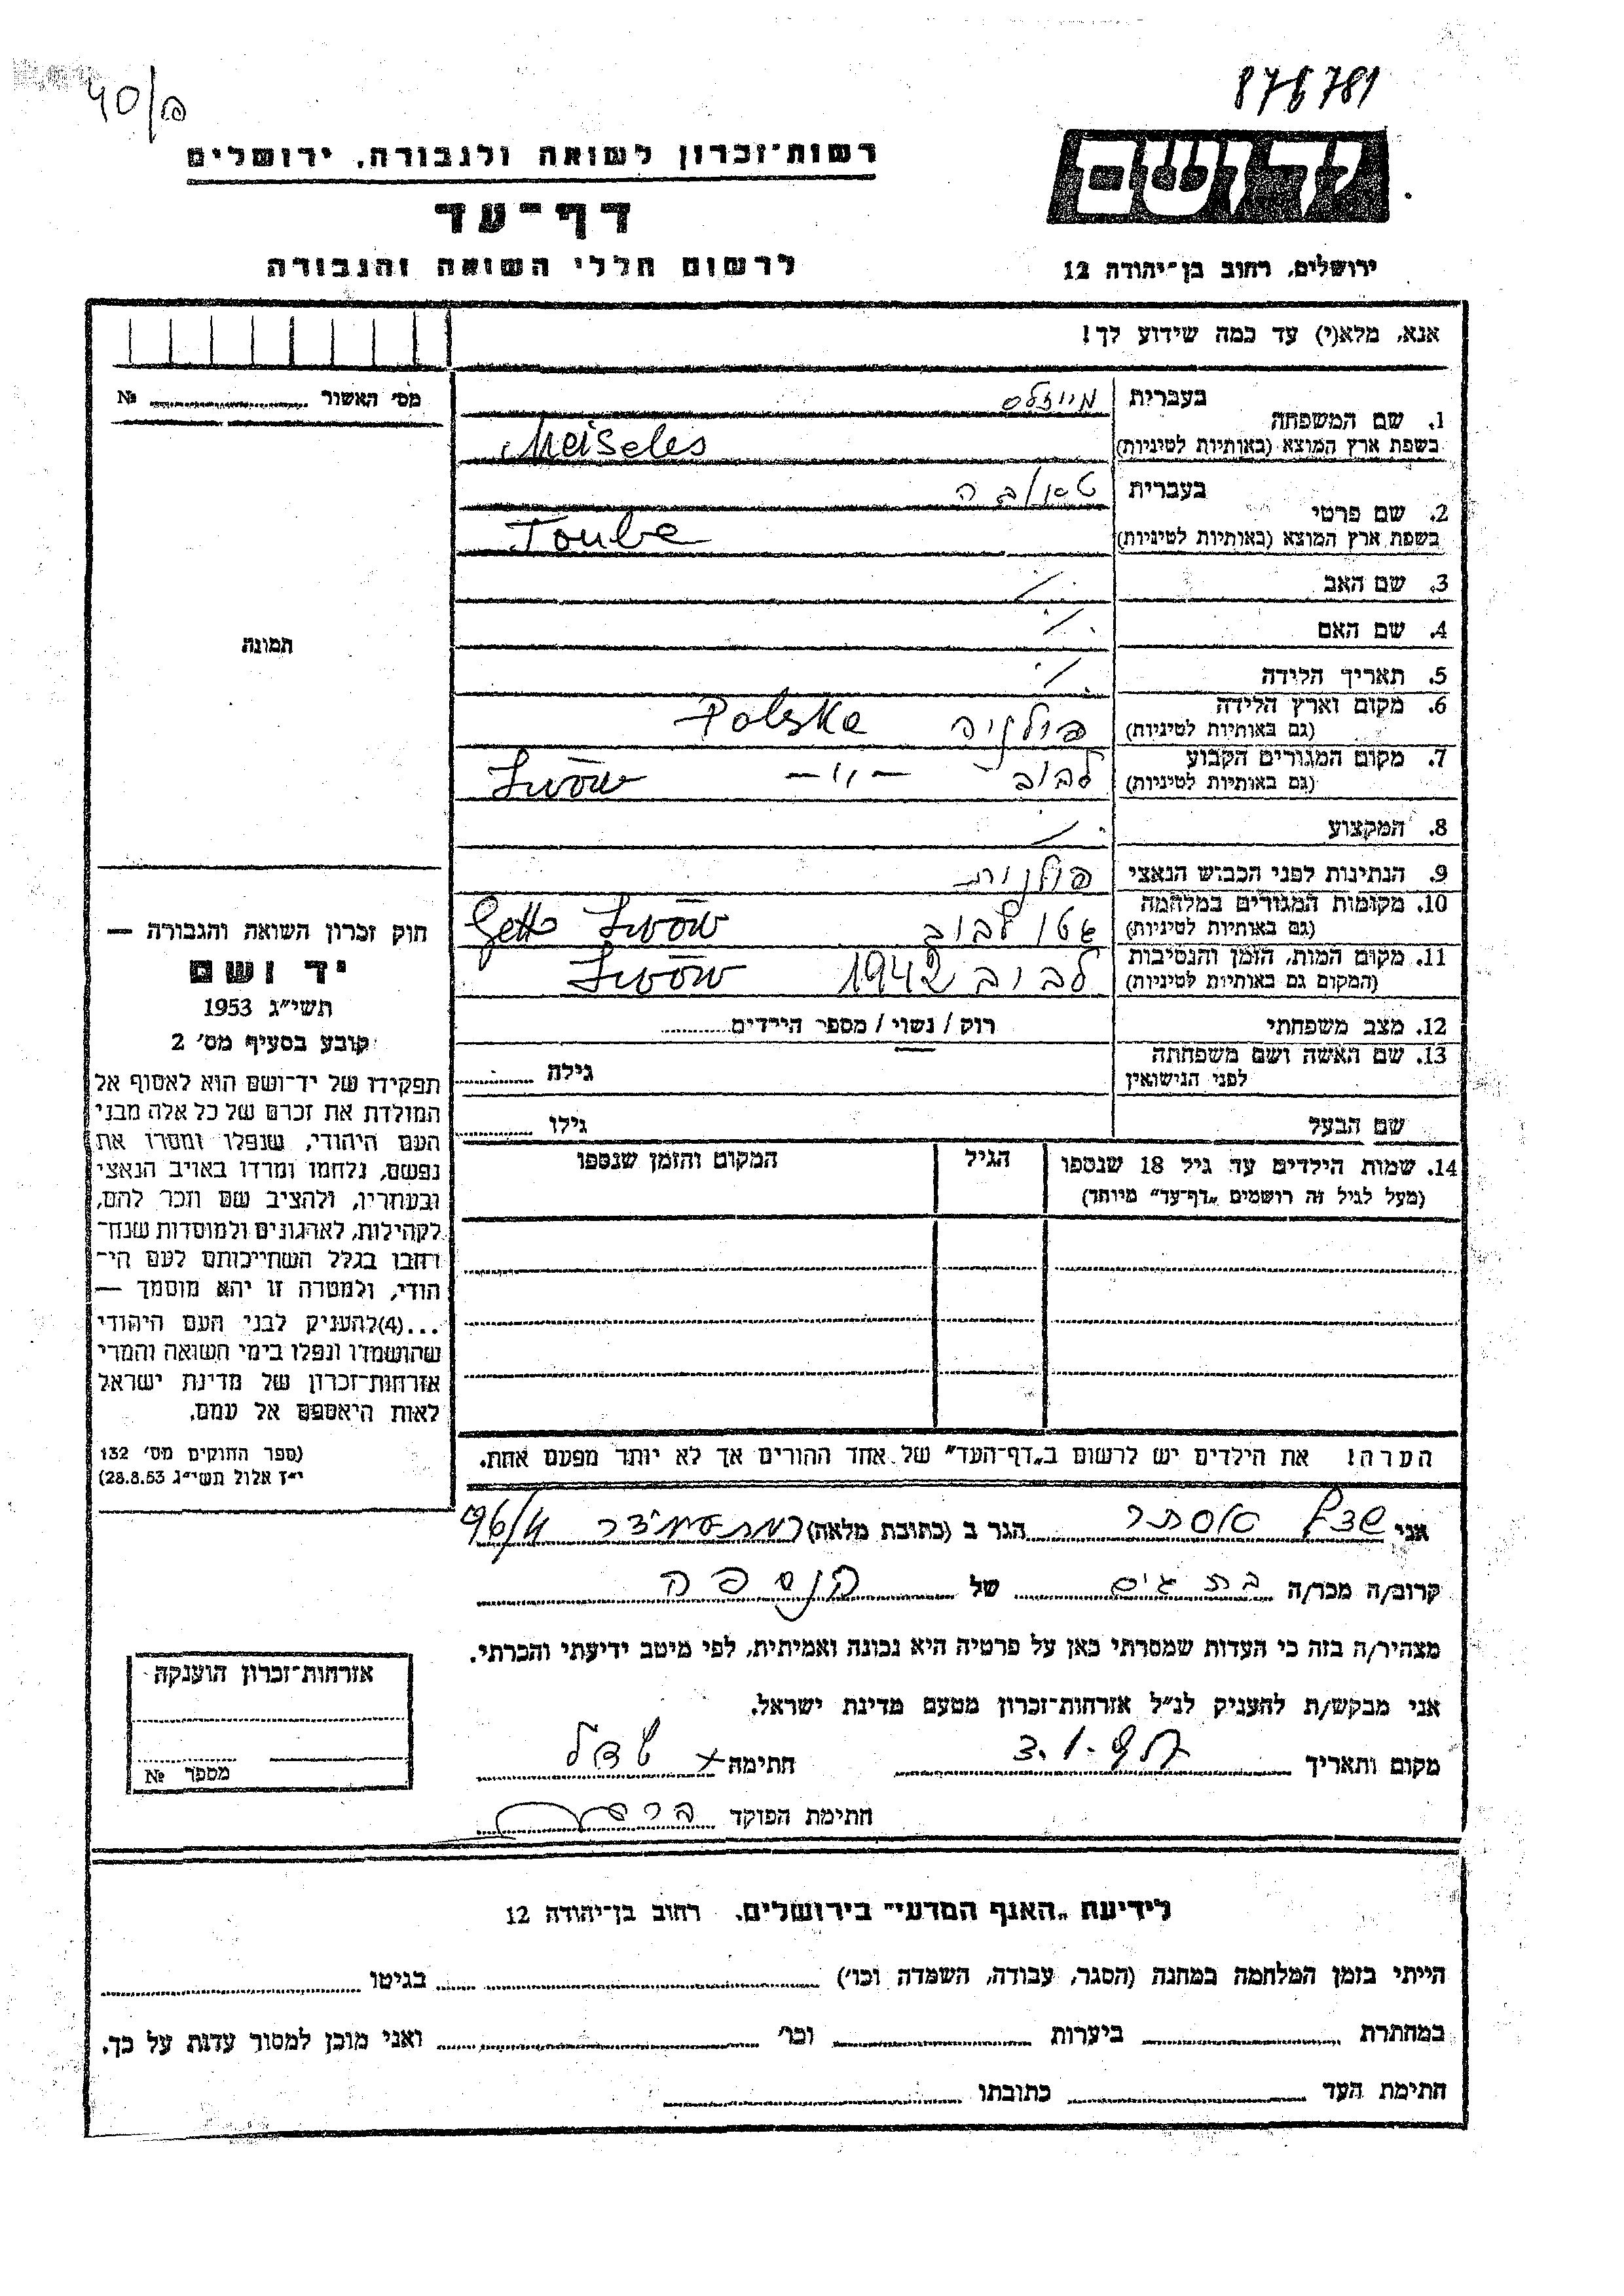 40/מ
878781
רשות־זכרון לשואה ולגבורה, ירושלים
דף־עד
לרשום חללי השואה והגבורה
יד ושם
ירושלים, רחוב בן־יהודה 12
אנא, מלא(י) עד כמה שידוע לך!
מס׳ האשור №
1. שם המשפחה בעברית מייזלס
בשפת ארץ המוצא (באותיות לטיניות) Meiseles
2. שם פרטי בעברית טאובה
בשפת ארץ המוצא (באותיות לטיניות) Toube
3. שם האב
4. שם האם
תמונה
5. תאריך הלידה
6. מקום וארץ הלידה (גם באותיות לטיניות) פולניה Polska
7. מקום המגורים הקבוע (גם באותיות לטיניות) לבוב –״– Lwów
8. המקצוע
9. הנתינות לפני הכבוש הנאצי פולנית
10. מקומות המגורים במלחמה (גם באותיות לטיניות) גטו לבוב Getto Lwów
11. מקום המות, הזמן והנסיבות (המקום גם באותיות לטיניות) לבוב 1942 Lwów
12. מצב משפחתי רוק / נשוי / מספר הילדים
13. שם האשה ושם משפחתה לפני הנישואין גילה
שם הבעל גילו
14. שמות הילדים עד גיל 18 שנספו הגיל המקום והזמן שנספו
(מעל לגיל זה רושמים „דף־עד״ מיוחד)
חוק זכרון השואה והגבורה —
יד ושם
תשי״ג 1953
קובע בסעיף מס׳ 2
תפקידו של יד־ושם הוא לאסוף אל
המולדת את זכרם של כל אלה מבני
העם היהודי, שנפלו ומסרו את
נפשם, נלחמו ומרדו באויב הנאצי
ובעוזריו, ולהציב שם וזכר להם,
לקהילות, לארגונים ולמוסדות שנח־
רחבו בגלל השתייכותם לעם הי־
הודי, ולמטרה זו יהא מוסמך —
...(4)להעניק לבני העם היהודי
שהושמדו ונפלו בימי השואה והמרי
אזרחות־זכרון של מדינת ישראל
לאות היאספם אל עמם.
(ספר החוקים מס׳ 132
י״ז אלול תשי״ג 28.8.53)
הערה! את הילדים יש לרשום ב„דף־העד״ של אחד ההורים אך לא יותר מפעם אחת.
אני אסתר הגר ב (כתובת מלאה) 96/4
קרוב/ה מכר/ה בת גיס של הנספה
מצהיר/ה בזה כי העדות שמסרתי כאן על פרטיה היא נכונה ואמיתית, לפי מיטב ידיעתי והכרתי.
אני מבקש/ת להעניק לנ״ל אזרחות־זכרון מטעם מדינת ישראל.
מקום ותאריך 3.1. חתימה x
חתימת הפוקד
אזרחות־זכרון הוענקה
מספר №
לידיעת „האגף המדעי״ בירושלים, רחוב בן־יהודה 12
הייתי בזמן המלחמה במחנה (הסגר, עבודה, השמדה וכו׳) בגיטו
במחתרת ביערות וכו׳ ואני מוכן למסור עדות על כך.
חתימת העד כתובתו